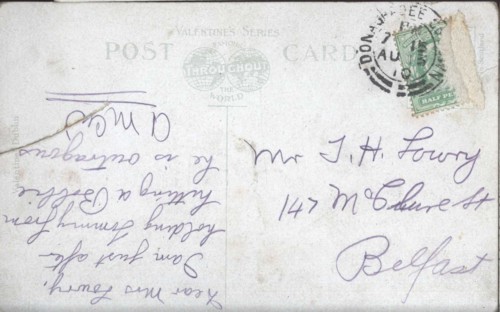 VALENTINE'S SERIES
POST CARD
THROUGHOUT
THE
WORLD
DONAGHADEE
AU
10
HALF PE
Dear Mrs Lowry,
I am just after
holding Tommy from
hitting a
he is outragous
Mr T. H. Lowry
147 McClure St
Belfast